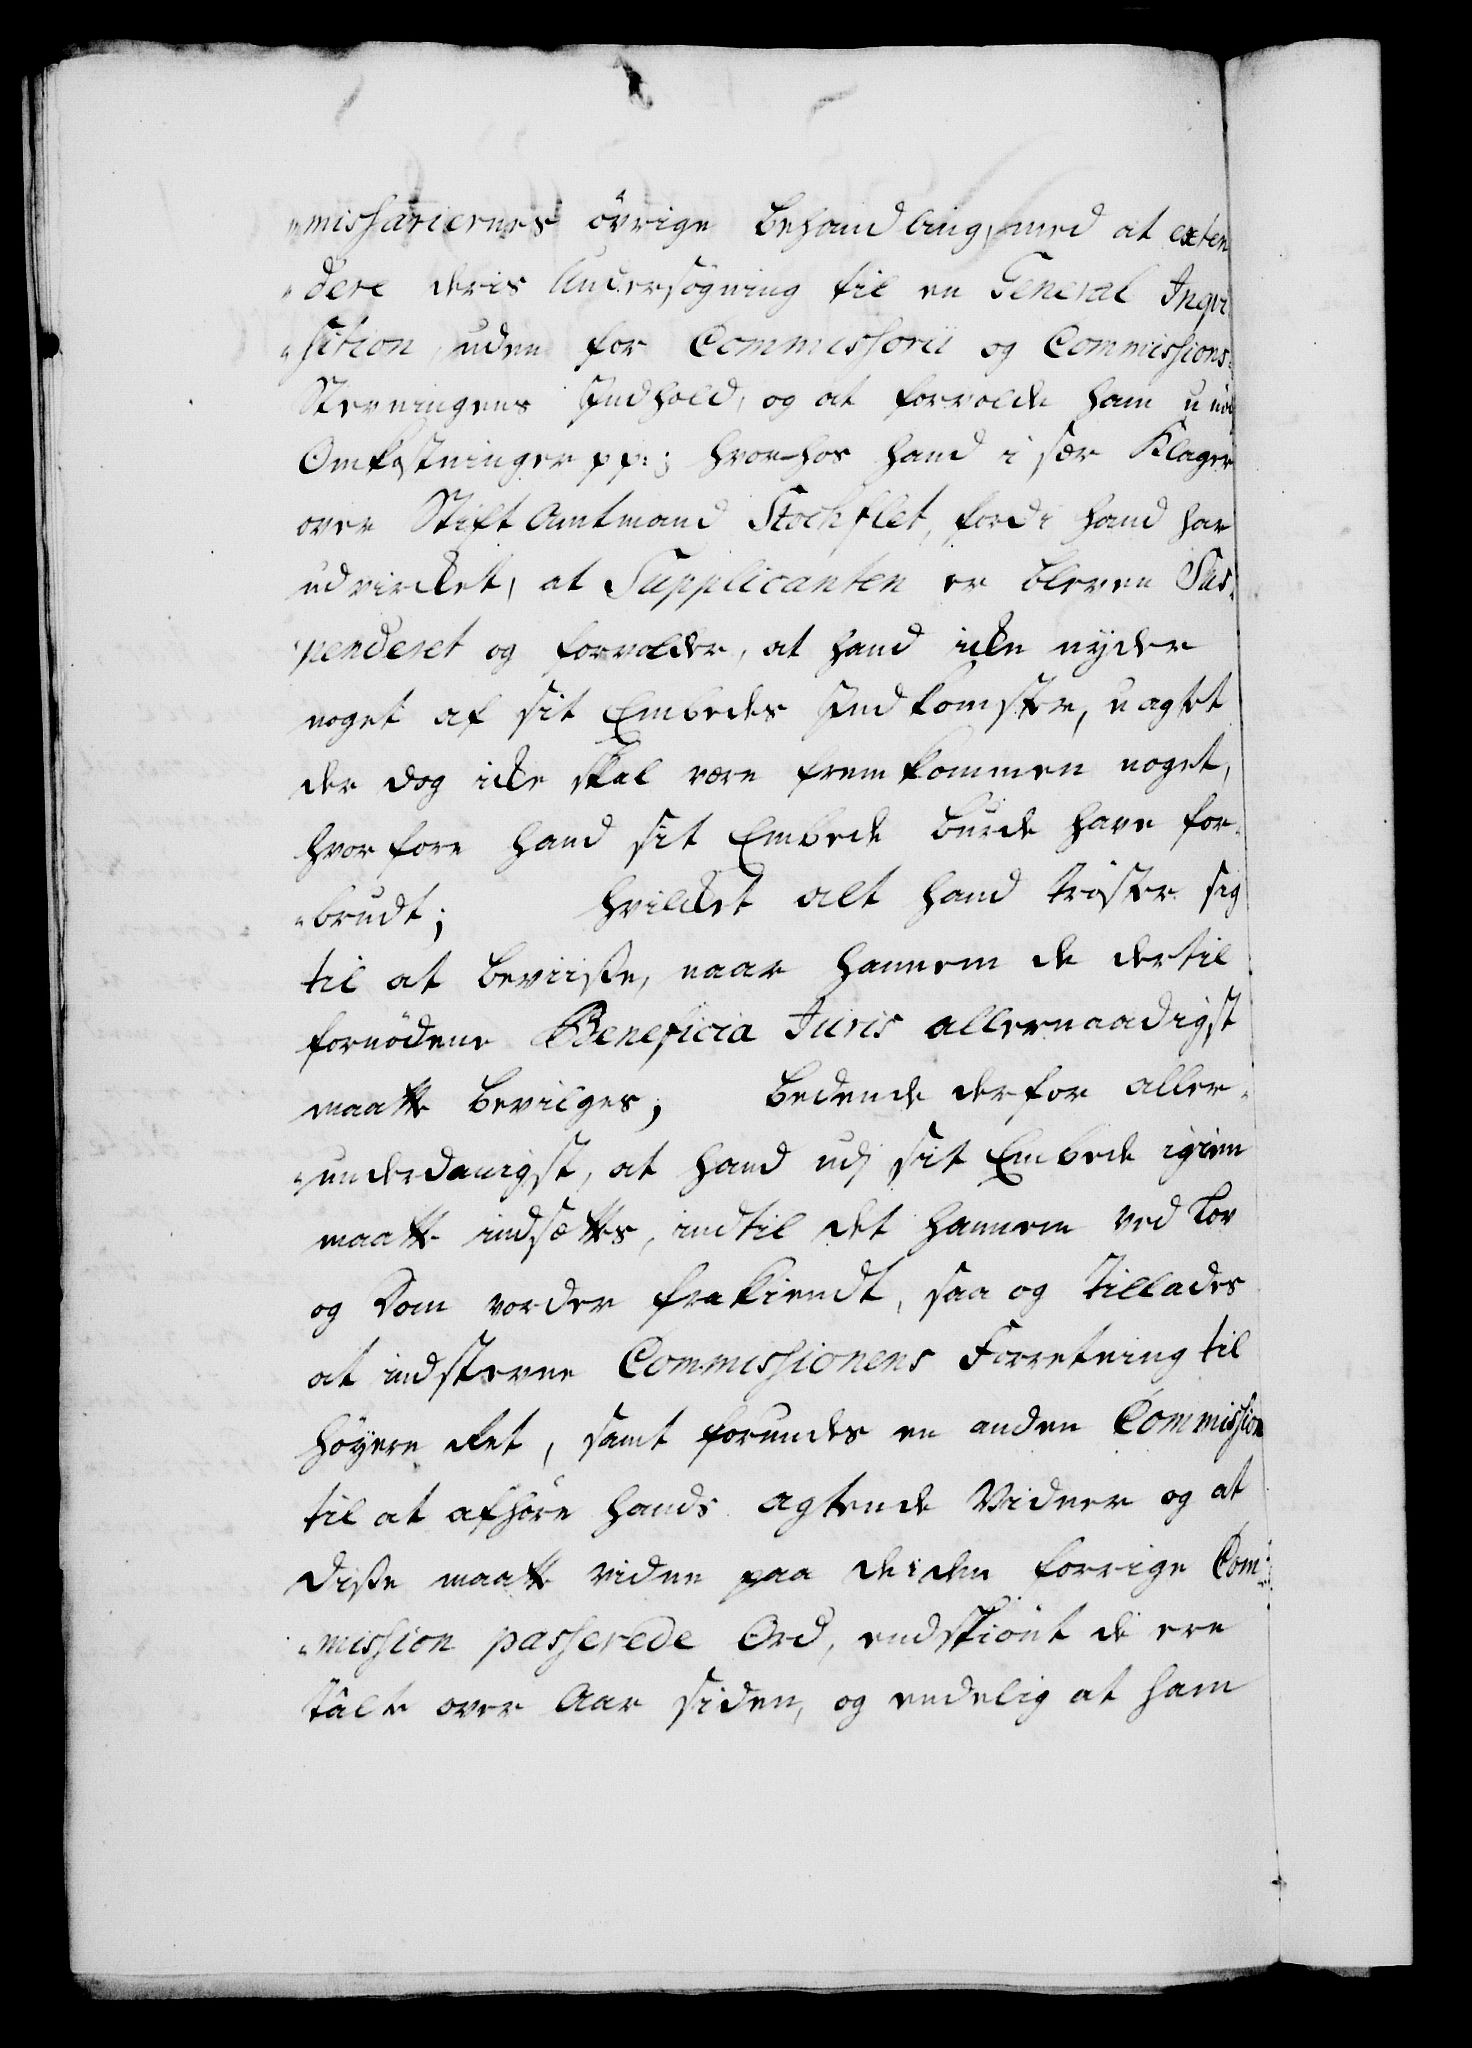 "missariernes övrige Behandling, med at exten
"dere deris Undersögning til en General Inqvi
"sition, uden for Commissorii og Commissions-
Stevningens Indhold, og at forvolde ham unöd
Omkostninger pp:; hvorhos hand i sær Klager
over Stift Amtmand Stockflet, fordi hand har
udvircket, at Supplicanten er bleven Sus-
penderet og forvolder, at hand icke nyder
noget af sit Embedes Indkomster, uagtet
der dog icke skal være fremkommen noget,
hvorfore hand sit Embede burde have for-
"brudt; hvilcket alt hand tröster sig
til at beviiße, naar hannem de dertil
fornödene Beneficia Juris allernaadigst
maatte bevilges; bedende derfor aller-
"underdanigst, at hand udj sit Embede igien
maatte indsættes, indtil det hannem ved Lov
og Dom vorder frakiendt, saa og tillades
at indstevne Commissionens Forretning til
höyere Ret, samt forundes en anden Commission
til at afhöre hands agtende Vidner og at
diße maatte vidne paa de i den forrige Com-
"mission passerede Ord, endskiönt de ere
talte over Aar siden, og endelig at ham